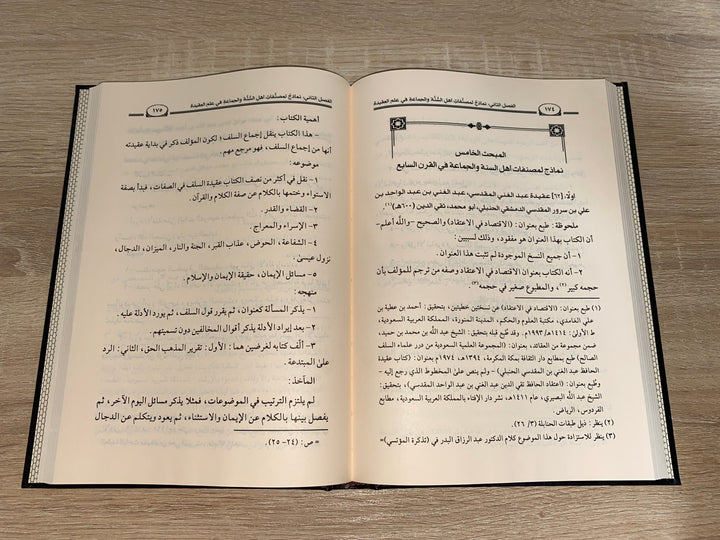 الفصل الثاني: نماذج لمصنفات أهل السُّنَّة والجماعة في علم العقيدة
١٧٤
المبحث الخامس
نماذج لمصنفات أهل السنة والجماعة في القرن السابع
أولًا: [٦٢] عقيدة عبد الغني المقدسي، عبد الغني بن عبد الواحد بن
علي بن سرور المقدسي الدمشقي الحنبلي، أبو محمد، تقي الدين (٦٠٠هـ)(١).
ملحوظة: طبع بعنوان: (الاقتصاد في الاعتقاد) والصحيح -والله أعلم-
أن الكتاب بهذا العنوان هو مفقود، وذلك لسببين:
١- أن جميع النسخ الموجودة لم تثبت هذا العنوان.
٢- أنه الكتاب بعنوان الاقتصاد في الاعتقاد وصفه من ترجم للمؤلف بأن
حجمه كبير(٢)، والمطبوع صغير في حجمه(٣).
(١) طبع بعنوان: (الاقتصاد في الاعتقاد) عن نسختين خطيتين، بتحقيق: أحمد بن عطية بن
علي الغامدي، مكتبة العلوم والحكم، المدينة المنورة، المملكة العربية السعودية،
ط الأولى: ١٤١٤هـ/١٩٩٣م. وقد طُبع قبله بتحقيق: الشيخ عبد الله بن محمد بن حميد،
ضمن مجموعة من العقائد، بعنوان: (المجموعة العلمية السعودية من درر علماء السلف
الصالح) طبع بمطابع دار الثقافة بمكة المكرمة، ١٣٩٤هـ، ١٩٧٤م بعنوان: (كتاب عقيدة
الحافظ عبد الغني بن المقدسي الحنبلي) - ولم ينص على المخطوط الذي رجع إليه -
وطُبع بعنوان: (اعتقاد الحافظ تقي الدين عبد الغني بن عبد الواحد المقدسي)، بتحقيق:
الشيخ عبد الله البصيري، عام ١٤١١هـ، نشر دار الإفتاء بالمملكة العربية السعودية، مطابع
الفردوس، الرياض.
(٢) ينظر: ذيل طبقات الحنابلة (٣/ ٢٦).
(٣) ينظر للاستزادة حول هذا الموضوع كلام الدكتور عبد الرزاق البدر في (تذكرة المؤتسي)=
الفصل الثاني: نماذج لمصنفات أهل السُّنَّة والجماعة في علم العقيدة
١٧٥
أهمية الكتاب:
- هذا الكتاب ينقل إجماع السلف؛ لكون المؤلف ذكر في بداية عقيدته
أنها من إجماع السلف، فهو مرجع مهم.
موضوعه:
١- نقل في أكثر من نصف الكتاب عقيدة السلف في الصفات، فبدأ بصفة
الاستواء وختمها بالكلام عن صفة الكلام والقرآن.
٢- القضاء والقدر.
٣- الإسراء والمعراج.
٤- الشفاعة، الحوض، عذاب القبر، الجنة والنار، الميزان، الدجال،
نزول عيسىٰ.
٥- مسائل الإيمان، حقيقة الإيمان والإسلام.
منهجه:
١- يذكر المسألة كعنوان، ثم يقرر قول السلف، ثم يورد الأدلة عليه.
٢- بعد إيراد الأدلة يذكر أقوال المخالفين دون تسميتهم.
٣- ألَّف كتابه لغرضين هما: الأول: تقرير المذهب الحق، الثاني: الرد
علىٰ المبتدعة.
المآخذ:
لم يلتزم الترتيب في الموضوعات، فمثلا يذكر مسائل اليوم الآخر، ثم
يفصل بينها بالكلام عن الإيمان والاستثناء، ثم يعود ويتكلم عن الدجال
= ص: (٢٤- ٢٥).